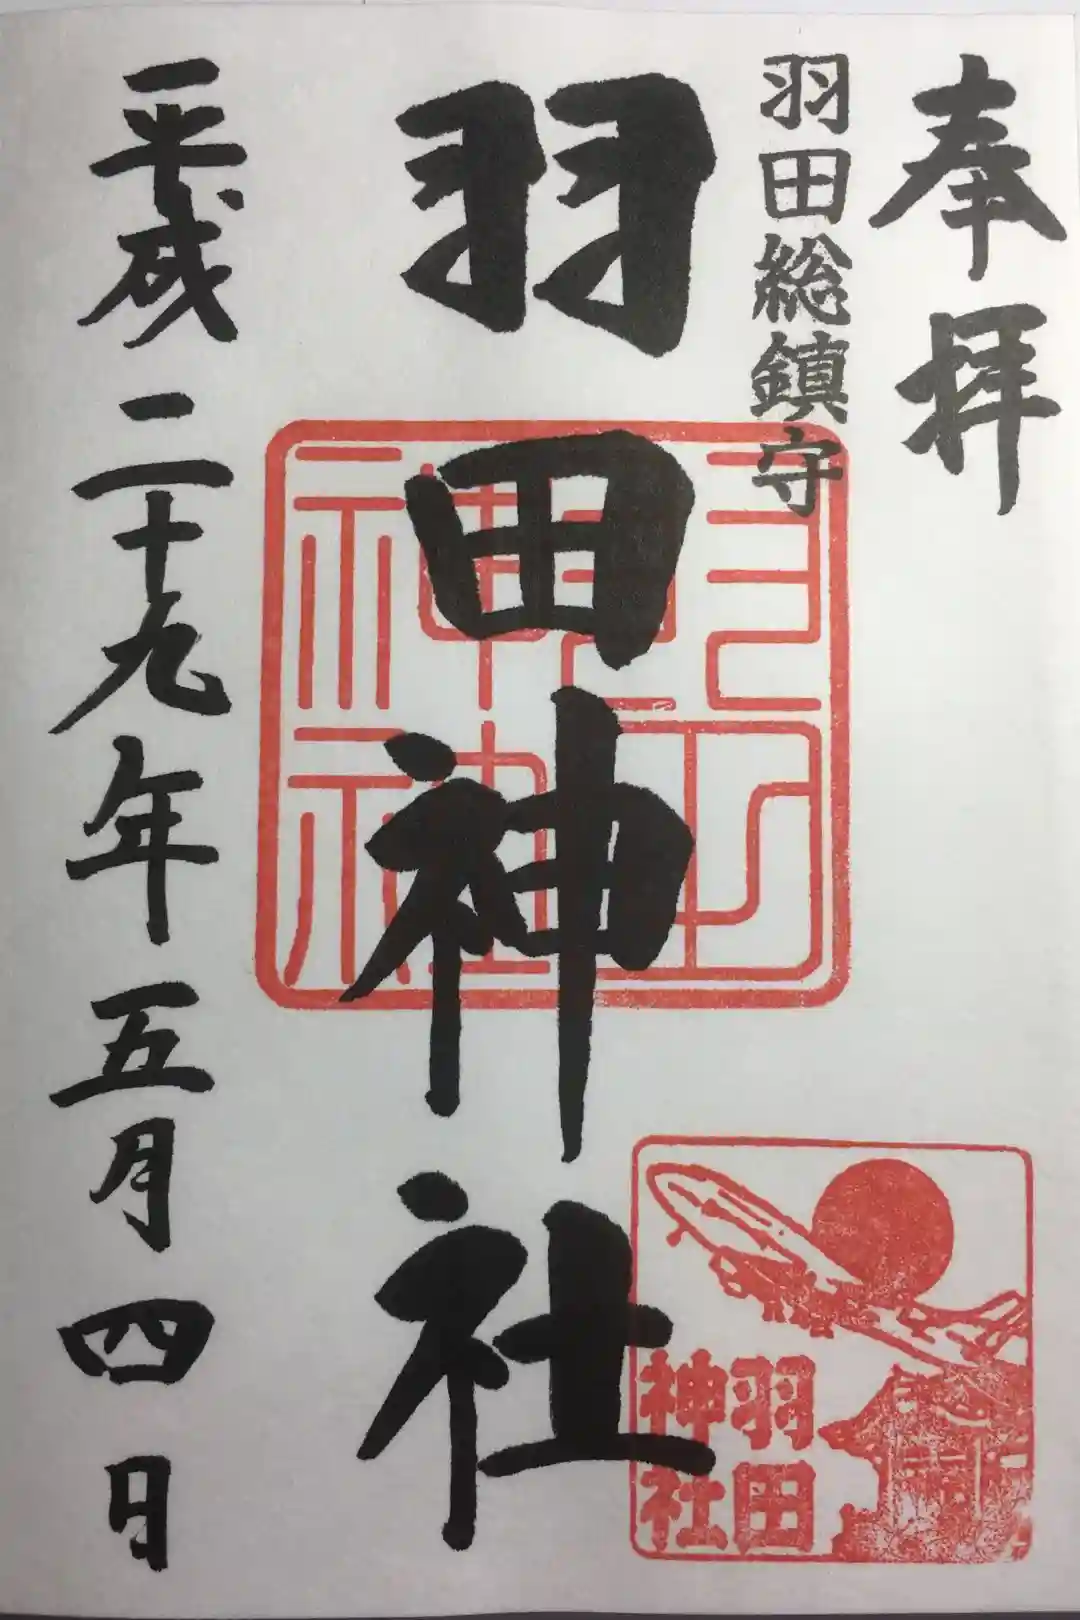 奉拝
羽田総鎮守
羽田神社
平成二十九年五月四日
羽田
神社
羽田
神社